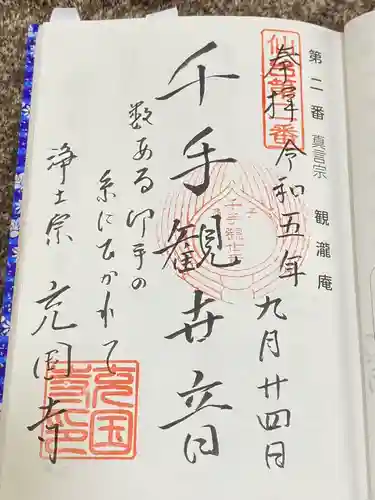 第二番 真言宗 観瀧庵
奉拝 令和五年九月廿四日
千手観世音
数ある御手の
糸にひかれて
浄土宗 充国寺
充国寺印